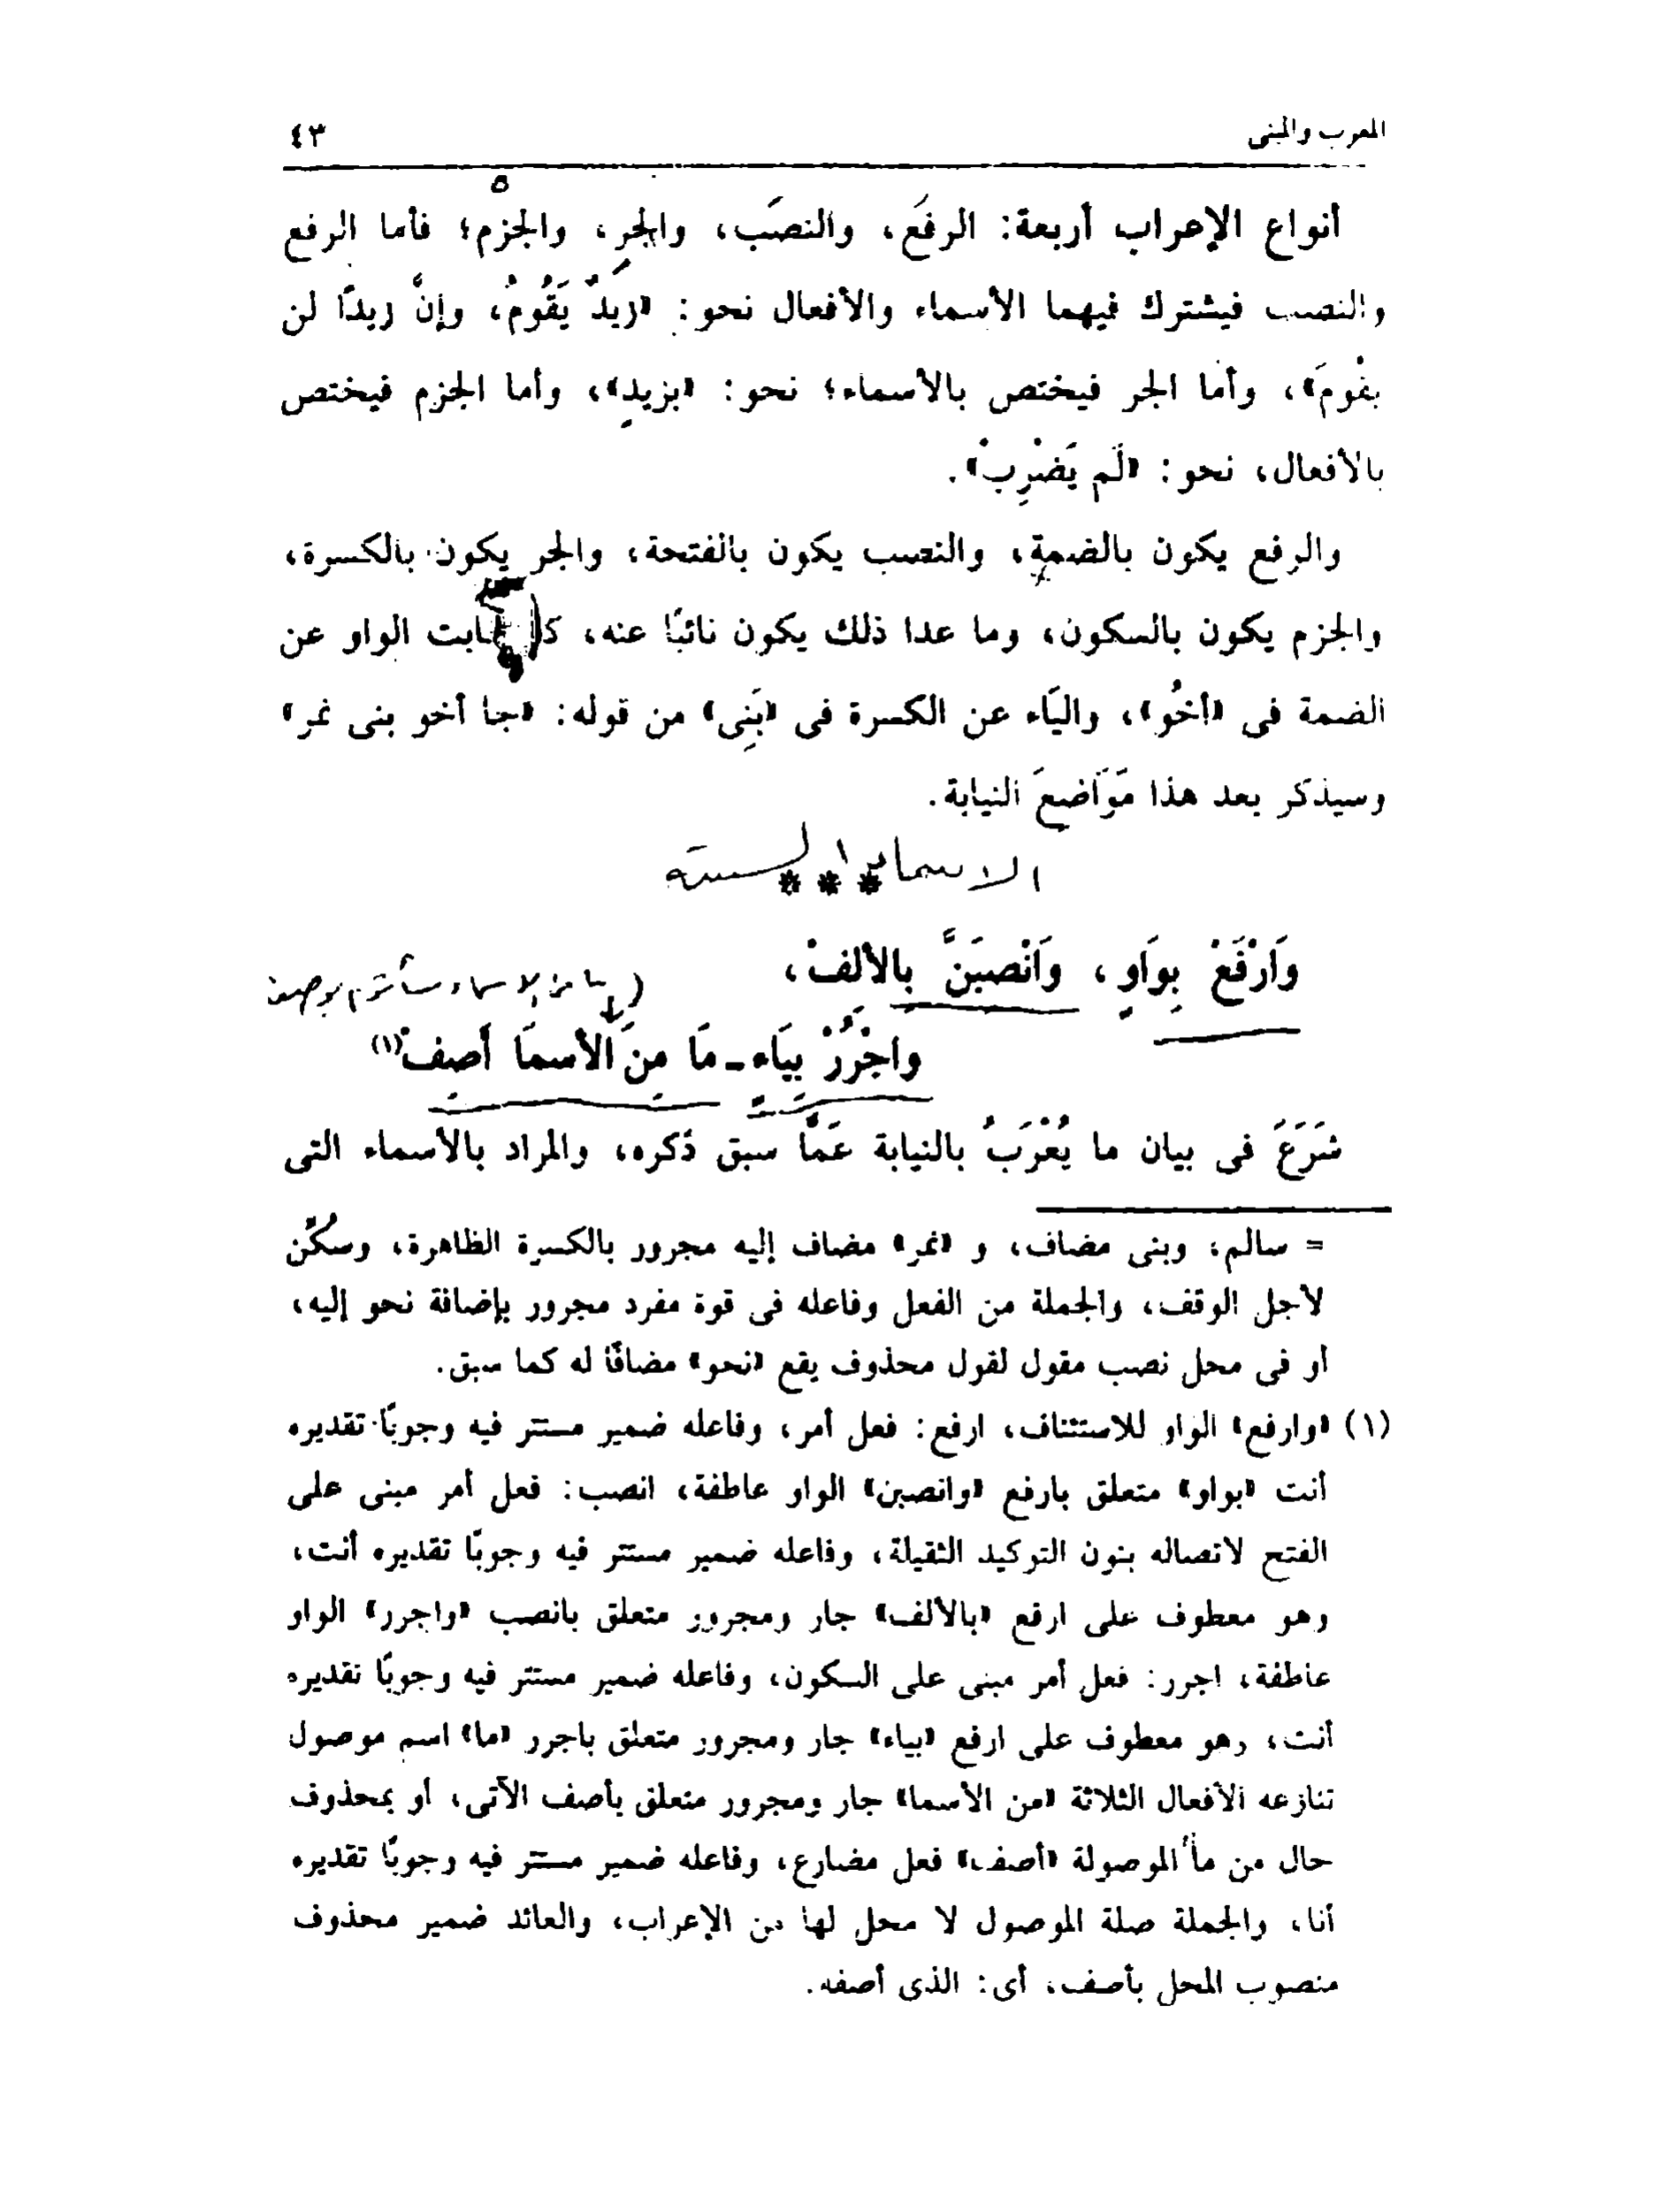 المعرب والمبنى
٤٣
أنواع الإعراب أربعة: الرفَع، والنصَب، والجرِ، والجزم؛ فأما الرفع
والنصب فيشترك فيهما الأسماء والأفعال نحو: «زيدٌ يَقُومُ، وإنَّ زيدًا لن
يقْومَ»، وأما الجر فيختص بالأسماء؛ نحو: «بزيدٍ»، وأما الجزم فيختص
بالأفعال، نحو: «لَم يَضْرِبْ».
والرفع يكون بالضمة، والنصب يكون بالفتحة، والجر يكون بالكسرة،
والجزم يكون بالسكون، وما عدا ذلك يكون نائبًا عنه، كما نابت الواو عن
الضمة فى «أخُو»، واليَاء عن الكسرة فى «بَنِى» من قوله: «جا أخو بنى نمر»
وسيذكر بعد هذا مَوَاضعَ النيابة.
الاسماء الستة
***
وَارْفَعْ بِوَاوٍ، وَانْصبَنَّ بِالألفْ،
واجْرُرْ بِيَاءٍ ـ مَا مِنَ الأسمَا أَصِفْ(١)
شَرَعَ فى بيان ما يُعْرَبُ بالنيابة عَمَّا سبق ذكره، والمراد بالأسماء التى
= سالم؛ وبنى مضاف، و «نمر» مضاف إليه مجرور بالكسرة الظاهرة، وسكِّن
لأجل الوقف، والجملة من الفعل وفاعله فى قوة مفرد مجرور بإضافة نحو إليه،
أو فى محل نصب مقول لقول محذوف يقع «نحو» مضافًا له كما سبق.
(١) «وارفع» الواو للاستئناف، ارفع: فعل أمر، وفاعله ضمير مستتر فيه وجوبًا تقديره
أنت «بواو» متعلق بارفع «وانصبن» الواو عاطفة، انصب: فعل أمر مبنى على
الفتح لاتصاله بنون التوكيد الثقيلة، وفاعله ضمير مستتر فيه وجوبًا تقديره أنت،
وهو معطوف على ارفع «بالألف» جار ومجرور متعلق بانصب «واجرر» الواو
عاطفة، اجرر: فعل أمر مبنى على السكون، وفاعله ضمير مستتر فيه وجوبًا تقديره
أنت، وهو معطوف على ارفع «بياء» جار ومجرور متعلق باجرر «ما» اسم موصول
تنازعه الأفعال الثلاثة «من الأسما» جار ومجرور متعلق بأصف الآتى، أو بمحذوف
حال من ما الموصولة «أصف» فعل مضارع، وفاعله ضمير مستتر فيه وجوبًا تقديره
أنا، والجملة صلة الموصول لا محل لها من الإعراب، والعائد ضمير محذوف
منصوب المحل بأصف، أى: الذى أصفه.